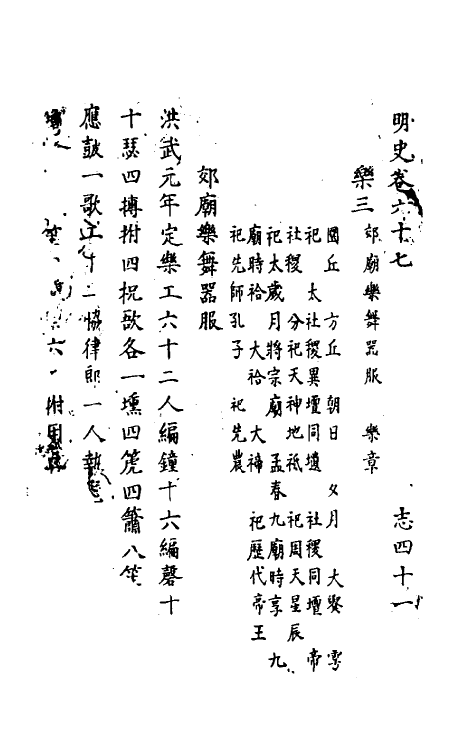 明史卷六十七 志四十一
樂三 郊廟樂舞器服 樂章
圜丘 方丘 朝日 夕月 大祭 雩
祀 太社稷異壇同壝 社稷同壇 帝
社稷 分祀天神地祇 祀周天星辰
祀太歲月將宗廟 孟春九廟時享 九
廟時祫 大祫 大禘 祀歷代帝王
祀先師孔子 祀先農
郊廟樂舞器服
洪武元年定樂工六十二人編鐘十六編磬十
十瑟四搏拊四柷敔各一壎四篪四簫八笙
應鼓一歌工十二協律郎一人執
六